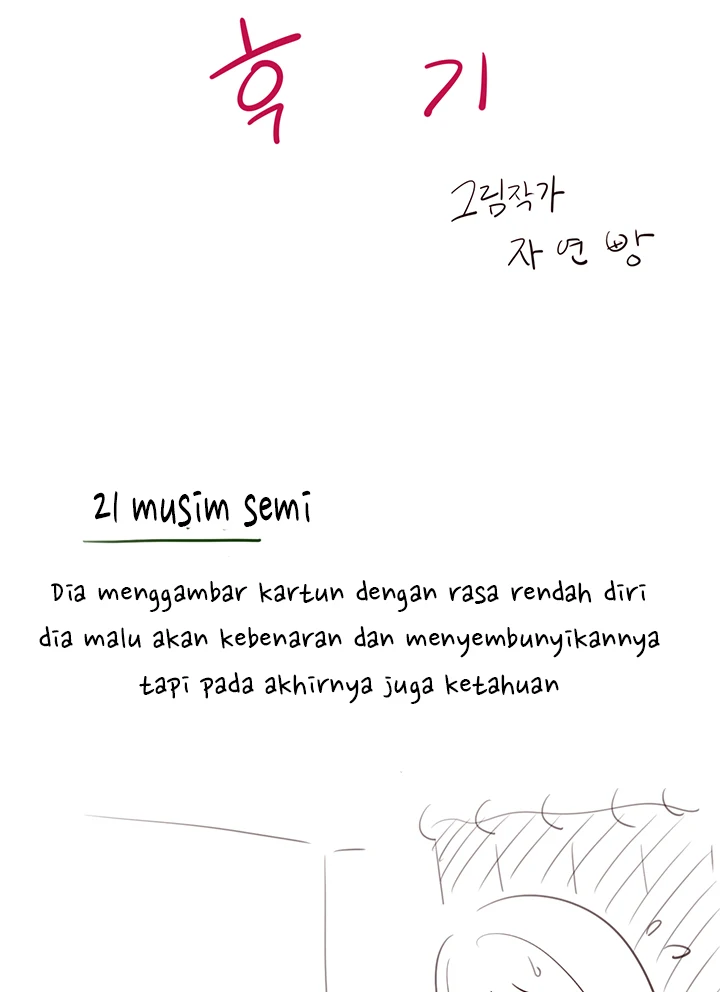 후기
그림작가
자연빵
21 musim semi
Dia menggambar kartun dengan rasa rendah diri
dia malu akan kebenaran dan menyembunyikannya
tapi pada akhirnya juga ketahuan